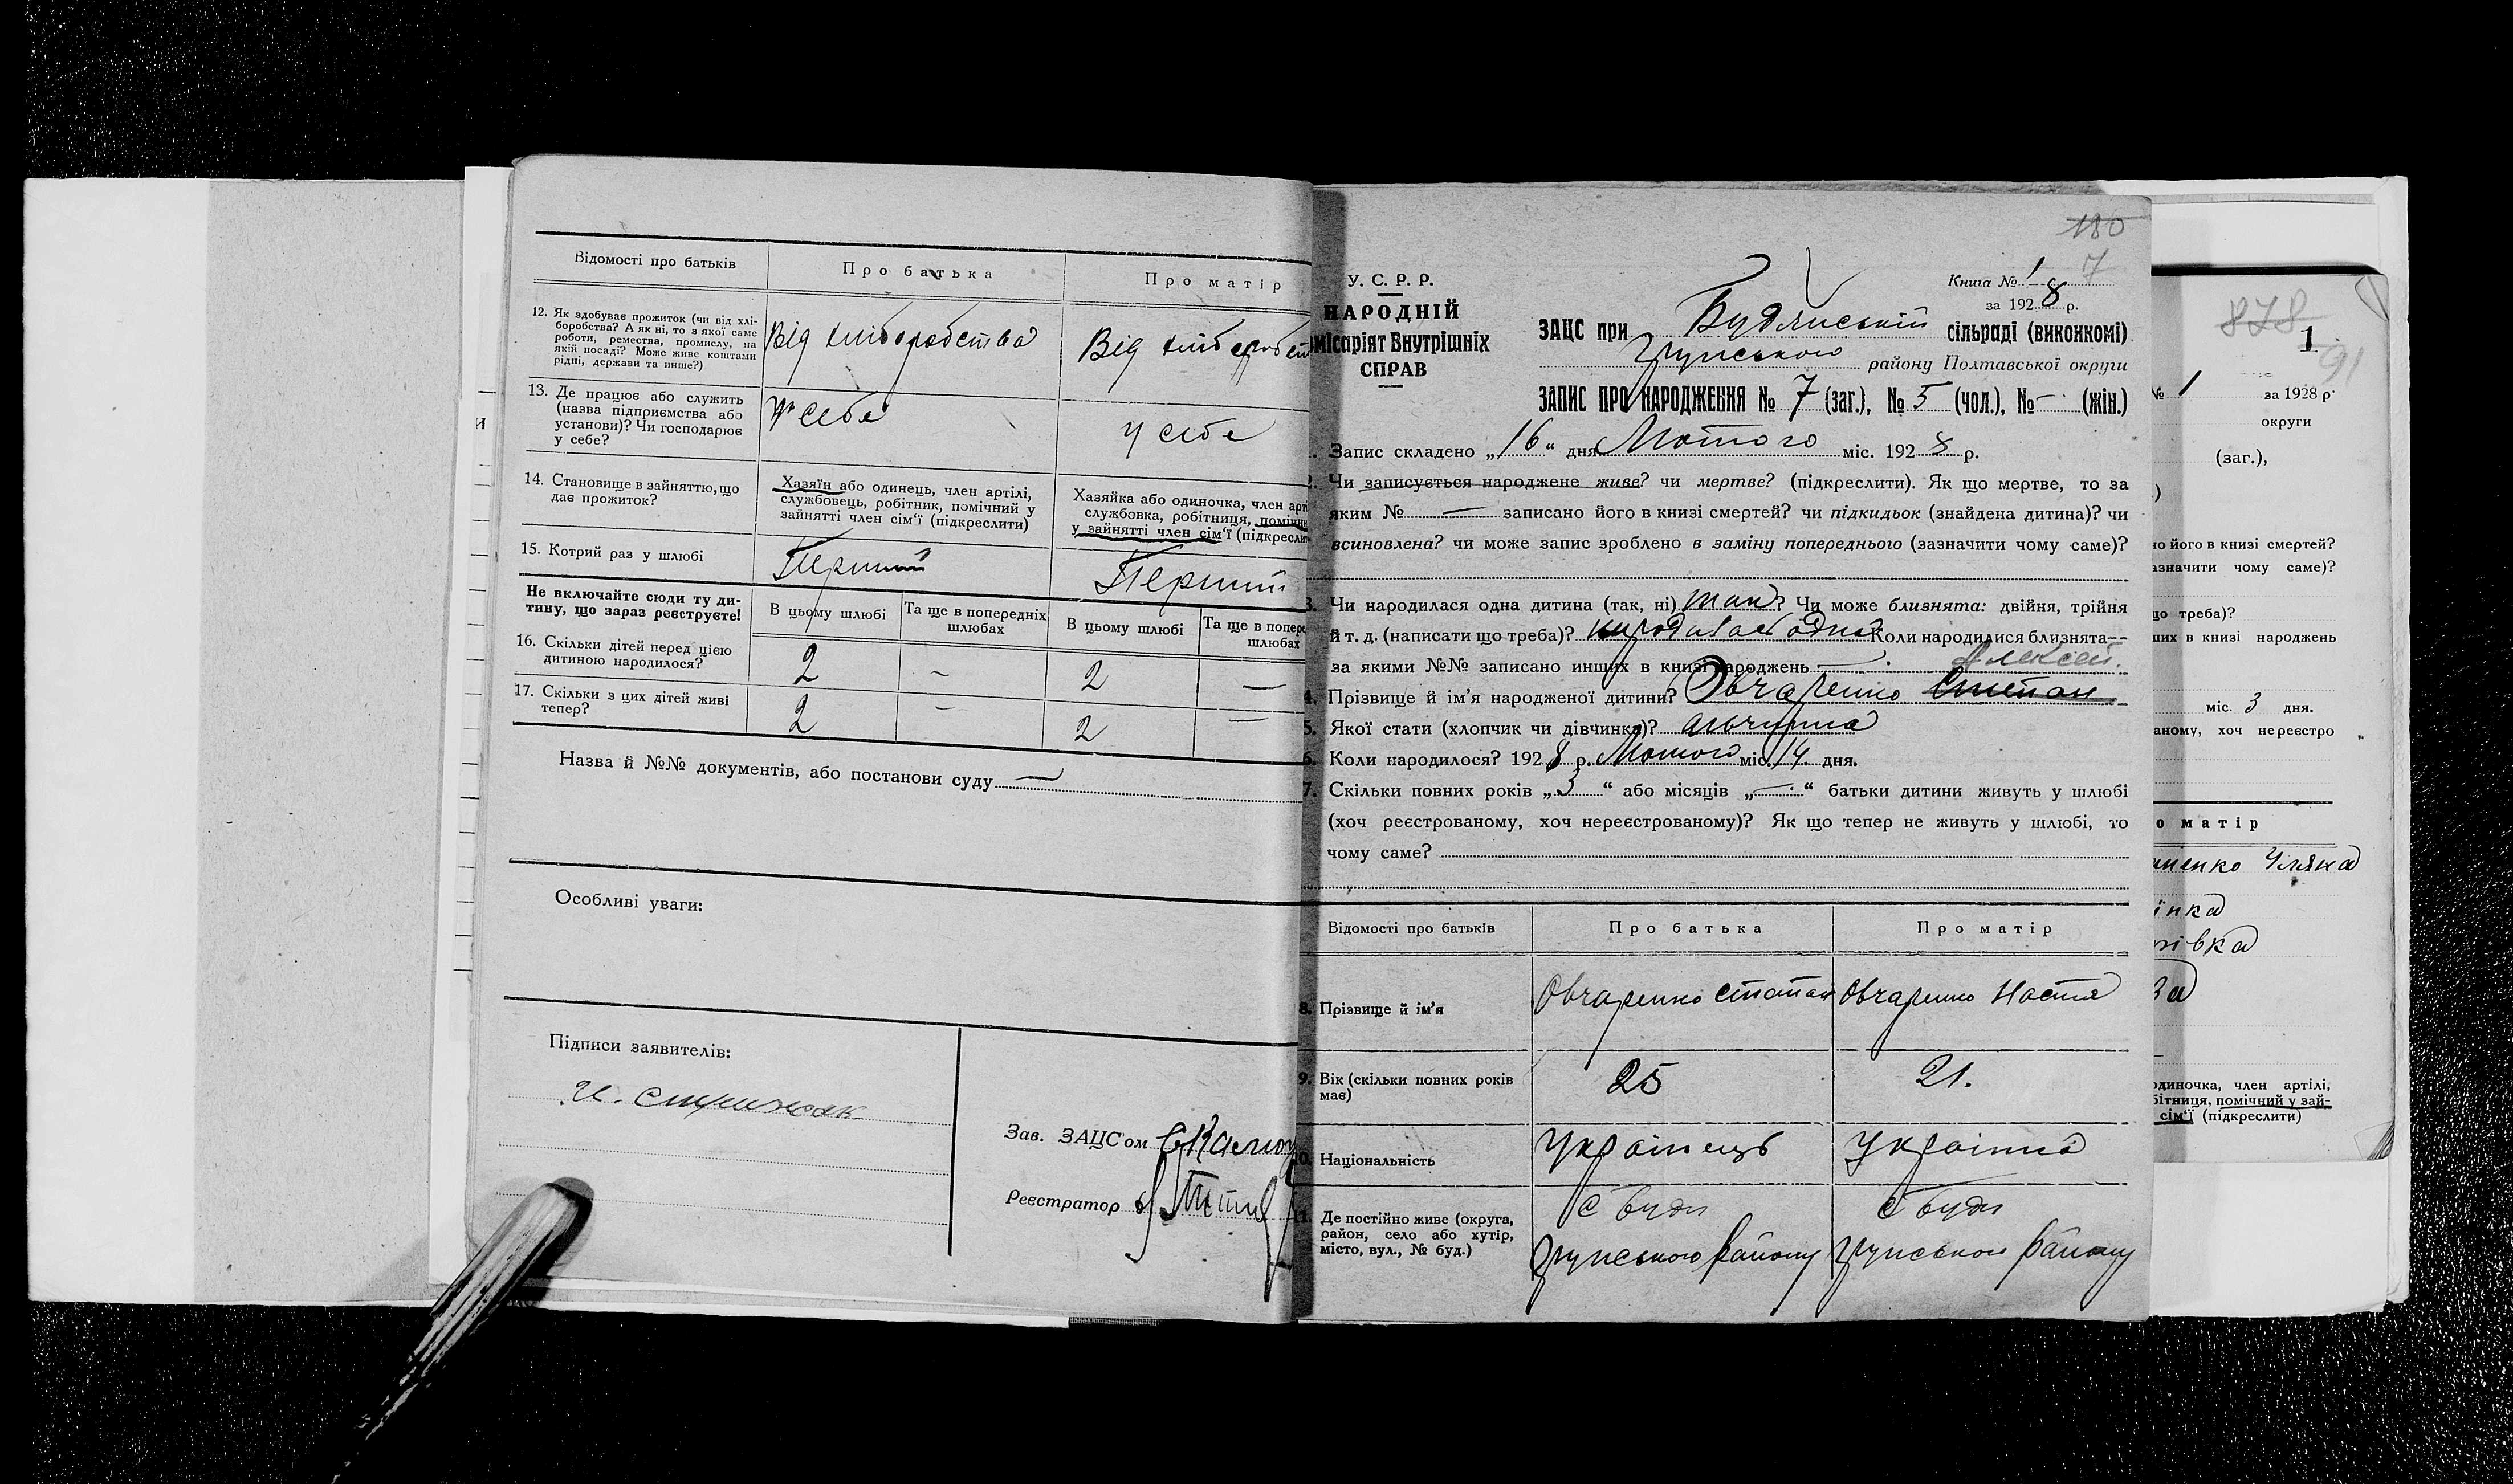 Відомості про батьків
Про батька
Про матір
12. Як здобуває прожиток (чи від хлі-
боробства? А як ні, то з якої саме
роботи, ремества, промислу, на
якій посаді? Може живе коштами
рідні, держави та инше?)
Від хліборобства
Від хлібороб
13. Де працює або служить
(назва підприємства або
установи)? Чи господарює
у себе?
У себе
у себе
14. Становище в зайняттю, що
дає прожиток?
Хазяїн або одинець, член артілі,
службовець, робітник, помічний у
зайнятті член сім'ї (підкреслити)
Хазяйка або одиночка, член арт
службовка, робітниця, помічни
у зайнятті член сім'ї (підкресли
15. Котрий раз у шлюбі
Перший
Перший
Не включайте сюди ту ди-
тину, що зараз реєструєте!
В цьому шлюбі
Та ще в попередніх
шлюбах
В цьому шлюбі
Та ще в попере
шлюбах
16. Скільки дітей перед цією
дитиною народилося?
2 - 2 —
17. Скільки з цих дітей живі
тепер?
2 - 2 —
Назва й №№ документів, або постанови суду —
Особливі уваги:
Підписи заявителів:
Зав. ЗАЦС'ом
Реєстратор
180
7
У. С. Р. Р.
НАРОДНІЙ
місаріят Внутрішніх
СПРАВ
Книга № 1
за 1928 р.
ЗАЦС при Будянській сільраді (виконкомі)
Грунського району Полтавської округи
ЗАПИС ПРО НАРОДЖЕННЯ № 7 (заг.), № 5 (чол.), № - (жін.)
Запис складено „16“ дня Лютого міс. 1928 р.
Чи записується народжене живе? чи мертве? (підкреслити). Як що мертве, то за
яким № — записано його в книзі смертей? чи підкидьок (знайдена дитина)? чи
всиновлена? чи може запис зроблено в заміну попереднього (зазначити чому саме)?
Чи народилася одна дитина (так, ні) так? Чи може близнята: двійня, трійня
й т. д. (написати що треба)? народилась одна Коли народилися близнята--
за якими №№ записано инших в книзі народжень —
Алексей.
4. Прізвище й ім'я народженої дитини? Овчаренко Степан
5. Якої стати (хлопчик чи дівчинка)?
6. Коли народилося? 1928 р. Лютого міс. 14 дня.
7. Скільки повних років „3“ або місяців „—“ батьки дитини живуть у шлюбі
(хоч реєстрованому, хоч нереєстрованому)? Як що тепер не живуть у шлюбі, то
чому саме?
Відомості про батьків
Про батька
Про матір
8. Прізвище й ім'я
Овчаренко Степан
Овчаренко Настя
9. Вік (скільки повних років
має)
25
21.
10. Національність
Українець
Українка
11. Де постійно живе (округа,
район, село або хутір,
місто, вул., № буд.)
с Буди
Грунського району
с Буди
Грунського району
878
1
91
№ 1 за 1928 р.
округи
(заг.),
но його в книзі смертей?
азначити чому саме)?
що треба)?
ших в книзі народжень
міс. 3 дня.
аному, хоч нереєстро
о матір
енко Уляна
їнка
івка
одиночка, член артілі,
бітниця, помічний у зай-
сім'ї (підкреслити)